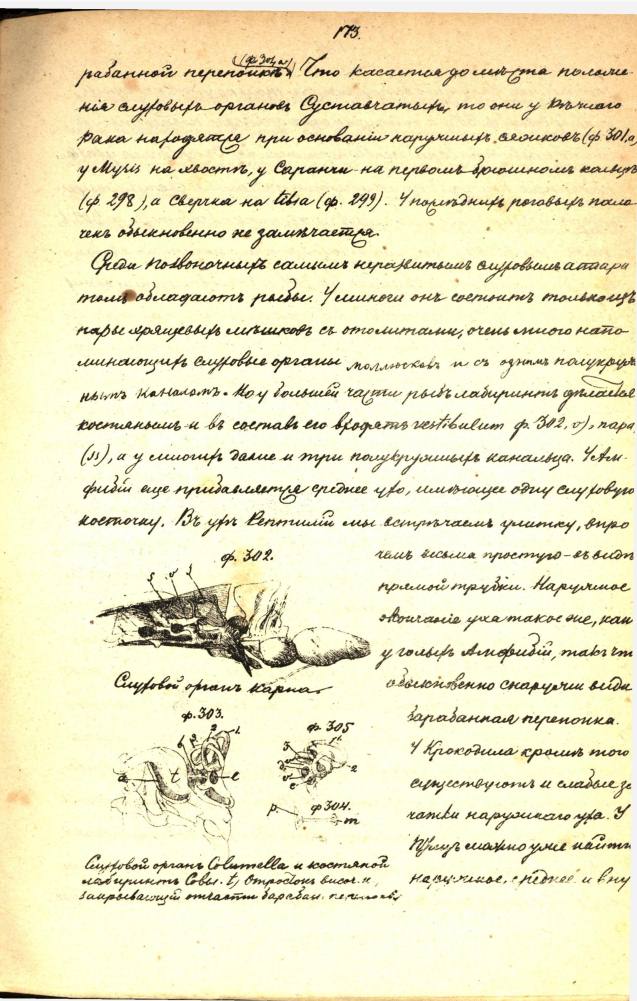 173.
(ф 301,а)
рабанной перепонкѣ. Что касается до мѣста положе-
нія слуховыхъ органовъ Суставчатыхъ, то они у Рѣчнаго
рака находятся при основаніи наружныхъ усиковъ (ф 301,а)
у Mysis на хвостѣ, у Саранчи на первомъ брюшномъ кольцѣ
(ф 298), а Сверчка на tibia (ф. 299). У послѣднихъ роговыхъ пало
чекъ обыкновенно не замѣчается.
Среди Позвоночныхъ самымъ неразвитымъ слуховымъ аппара
томъ обладаютъ рыбы. У миноги онъ состоитъ только изъ
пары хрящевыхъ мѣшковъ съ отолитами, очень много напо
минающихъ слуховые органы моллюсковъ и съ однимъ полукруж
нымъ каналомъ. Но у большей части рыбъ лабиринтъ дѣлается
костянымъ и въ составъ его входятъ vestibulum ф. 302, v), пара
(ss), а у многихъ даже и три полукружныхъ канальца. У Ам-
фибій еще прибавляется среднее ухо, имѣющее одну слуховую
косточку. Въ ухѣ Рептилій мы встрѣчаемъ улитку, впро
чемъ весьма простую - въ видѣ
прямой трубки. Наружное
окончаніе уха такое же, как
у голыхъ Амфибій, такъ чт
обыкновенно снаружи видн
барабанная перепонка.
У Крокодила кромѣ того
существуютъ и слабые за
чатки наружнаго уха. У
Птицъ можно уже найти
наружное, среднее и вну
ф. 302.
Слуховой органъ карпа.
ф. 303.
a t e
ф. 305
ф 304.
p. m
Слуховой органъ Columella и костяной
лабиринтъ Совы. t, Отростокъ височ. к,
закрывающій отчасти барабан. перепонку